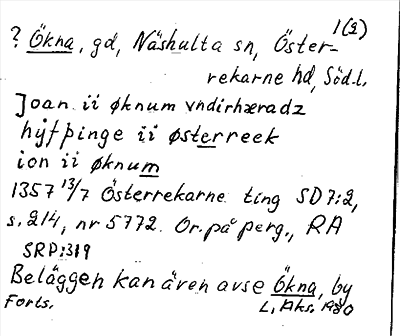 1(2)
? Ökna, gd, Näshulta sn, Öster-
rekarne hd, Söd.l.
Joan ii øknum vndirhæradz
hyfþinge ii østerreek
ion ii øknum
1357 13/7 Österrekarne ting SD 7:2,
s. 214, nr 5772. Or. på perg., RA
SRP:319
Beläggen kan även avse Ökna, by
Forts. L. Aks. 1980